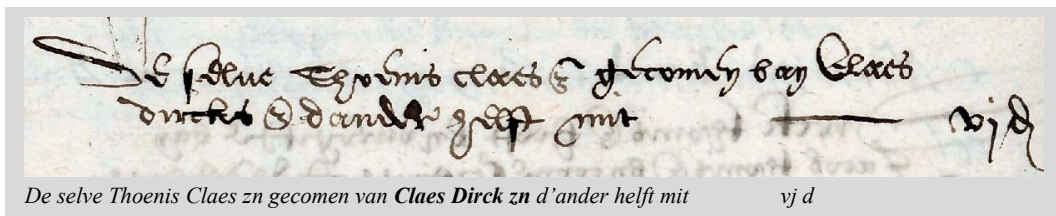 De selue Thoenis claes ẜ gecomen van Claes
dircks ẜ dander helft mit vj d
De selve Thoenis Claes zn gecomen van Claes Dirck zn d'ander helft mit vj d